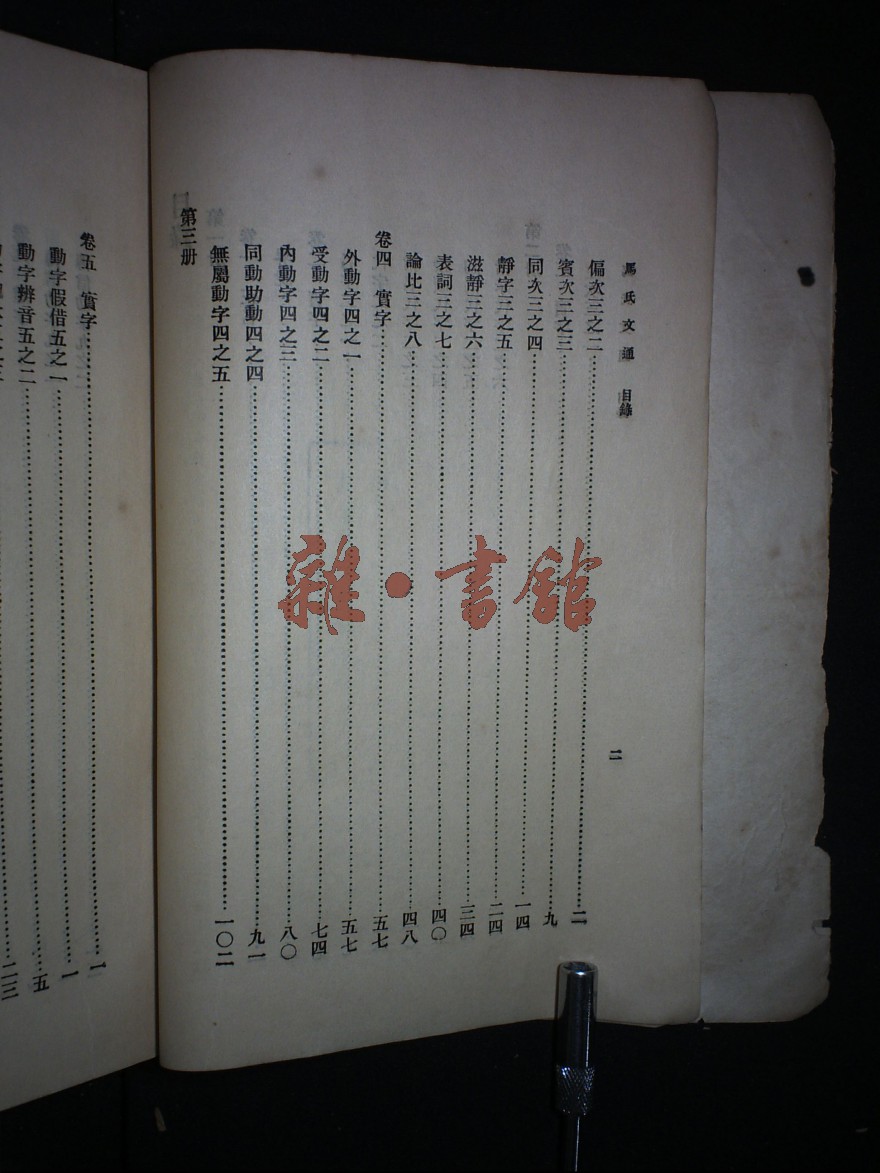 馬氏文通 目錄
二
偏次三之二……二
賓次三之三……九
同次三之四……一四
靜字三之五……二四
滋靜三之六……三四
表詞三之七……四〇
論比三之八……四八
卷四 實字……五七
外動字四之一……五七
受動字四之二……七四
內動字四之三……八〇
同動助動四之四……九一
無屬動字四之五……一〇二
第三册
卷五 實字……一
動字假借五之一……一
動字辨音五之二……五
二三
雜·書館